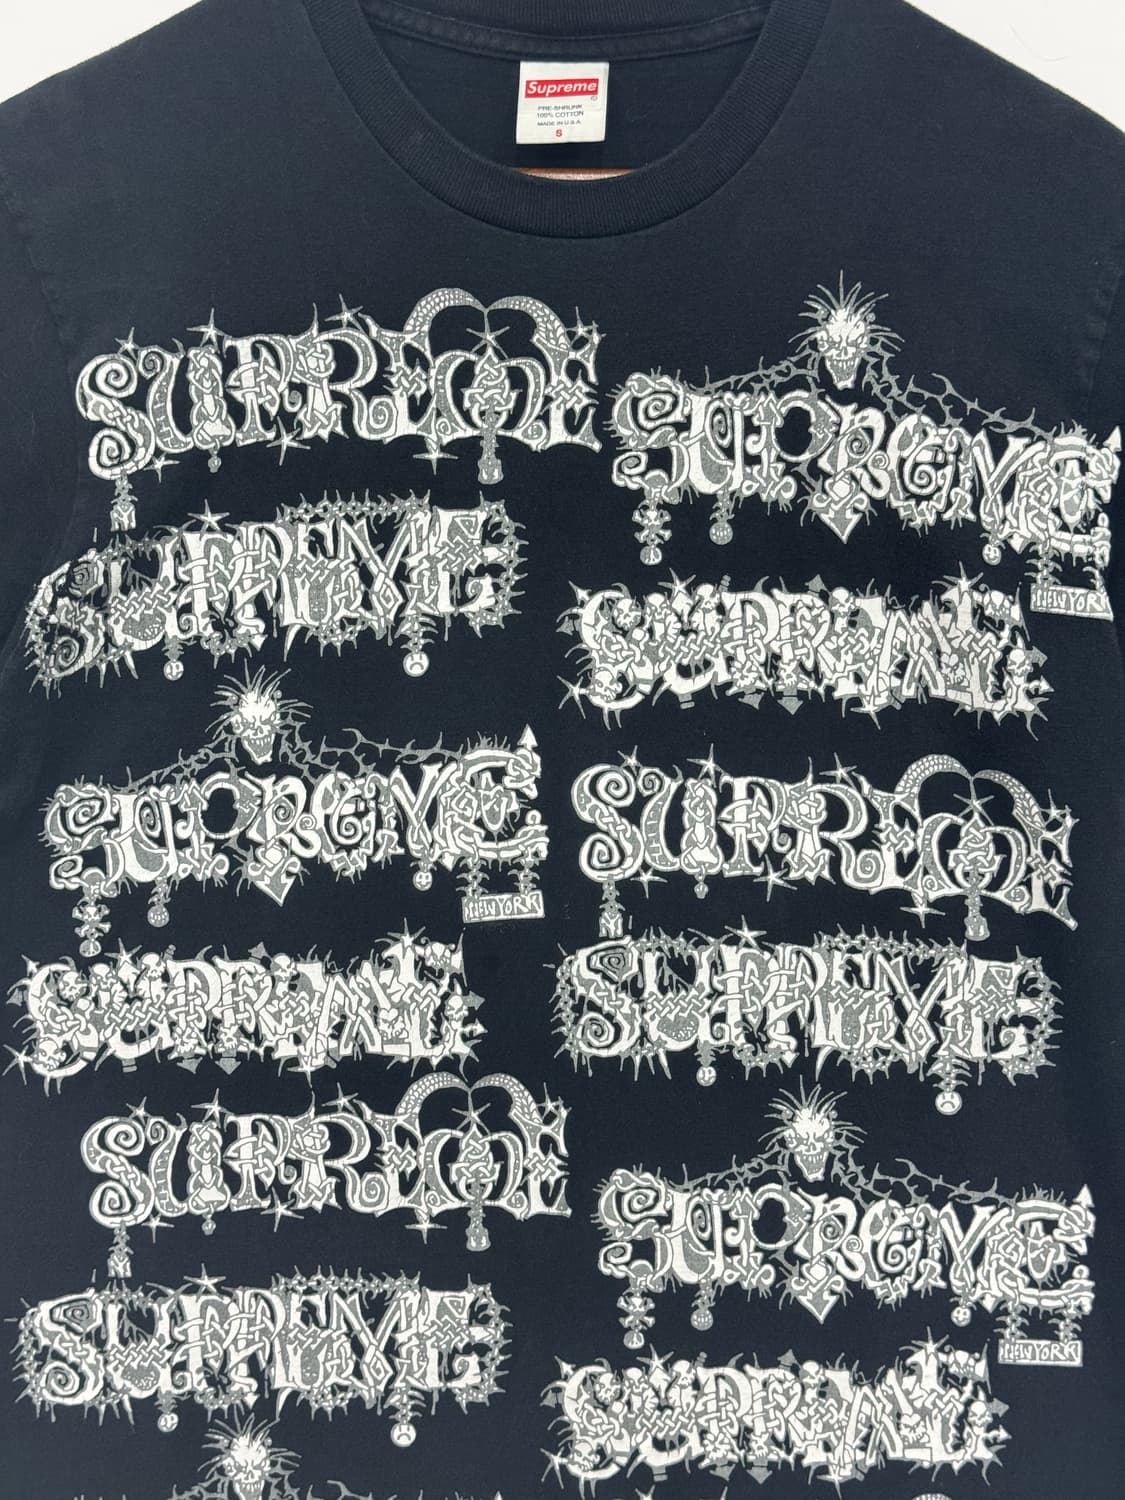 Supreme
PRE-SHRUNK
100% COTTON
MADE IN U.S.A.
S
SUPREME
SUPREME
NEW YORK
SUPREME
SUPREME
SUPREME
NEW YORK
SUPREME
SUPREME
SUPREME
SUPREME
SUPREME
NEW YORK
SUPREME
SUPREME